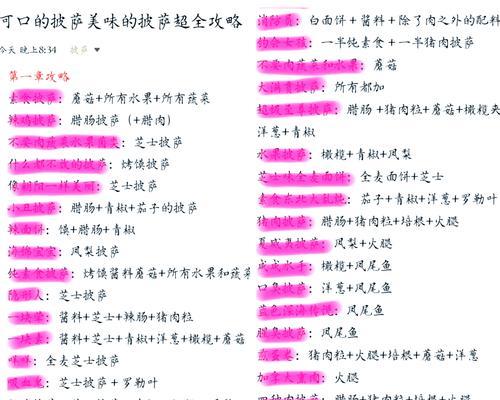 可口的披萨美味的披萨超全攻略
今天 晚上8:34 披萨
第一章攻略
素食披萨：蘑菇+所有水果+所有蔬菜
辣鸡披萨：腊肠披萨（+腊肉）
不要肉蔬菜水果菌类：芝士披萨
什么都不放的披萨：烤馍披萨
像朝阳一样美丽：芝士披萨
小丑披萨：腊肠+青椒+茄子的披萨
辣面饼：馍+腊肠+青椒
海绵宝宝：凤梨披萨
纯素食披萨：烤馍酱料蘑菇+所有水果和蔬菜
隐形人：芝士披萨
一块荤：酱料+芝士+辣肠+猪肉粒
一块素：酱料+芝士+青椒+洋葱+橄榄+蘑菇
：全麦芝士披萨
吸血鬼：芝士披萨+罗勒叶
消防员：白面饼+酱料+除了肉之外的配料
约会女孩：一半纯素食+一半猪肉披萨
不要肉蔬菜和水果：蘑菇
大满贯披萨：所有都加
超级至尊披萨：腊肠+猪肉粒+蘑菇+橄榄夹
洋葱+青椒
水果披萨：橄榄+青椒+凤梨
芝士味全麦面饼：全麦面饼+芝士
素食东北大乱炖：茄子+青椒+洋葱+罗勒叶
猪肉披萨：腊肠+猪肉粒+培根+火腿
夏威夷披萨：凤梨+火腿
水手：橄榄+凤尾鱼
口臭披萨：洋葱+凤尾鱼
蓝色深海传说：凤尾鱼
腥臭披萨：凤尾鱼
煎蛋卷：猪肉粒+火腿+培根+蘑菇+洋葱
加拿大熏肉：火腿